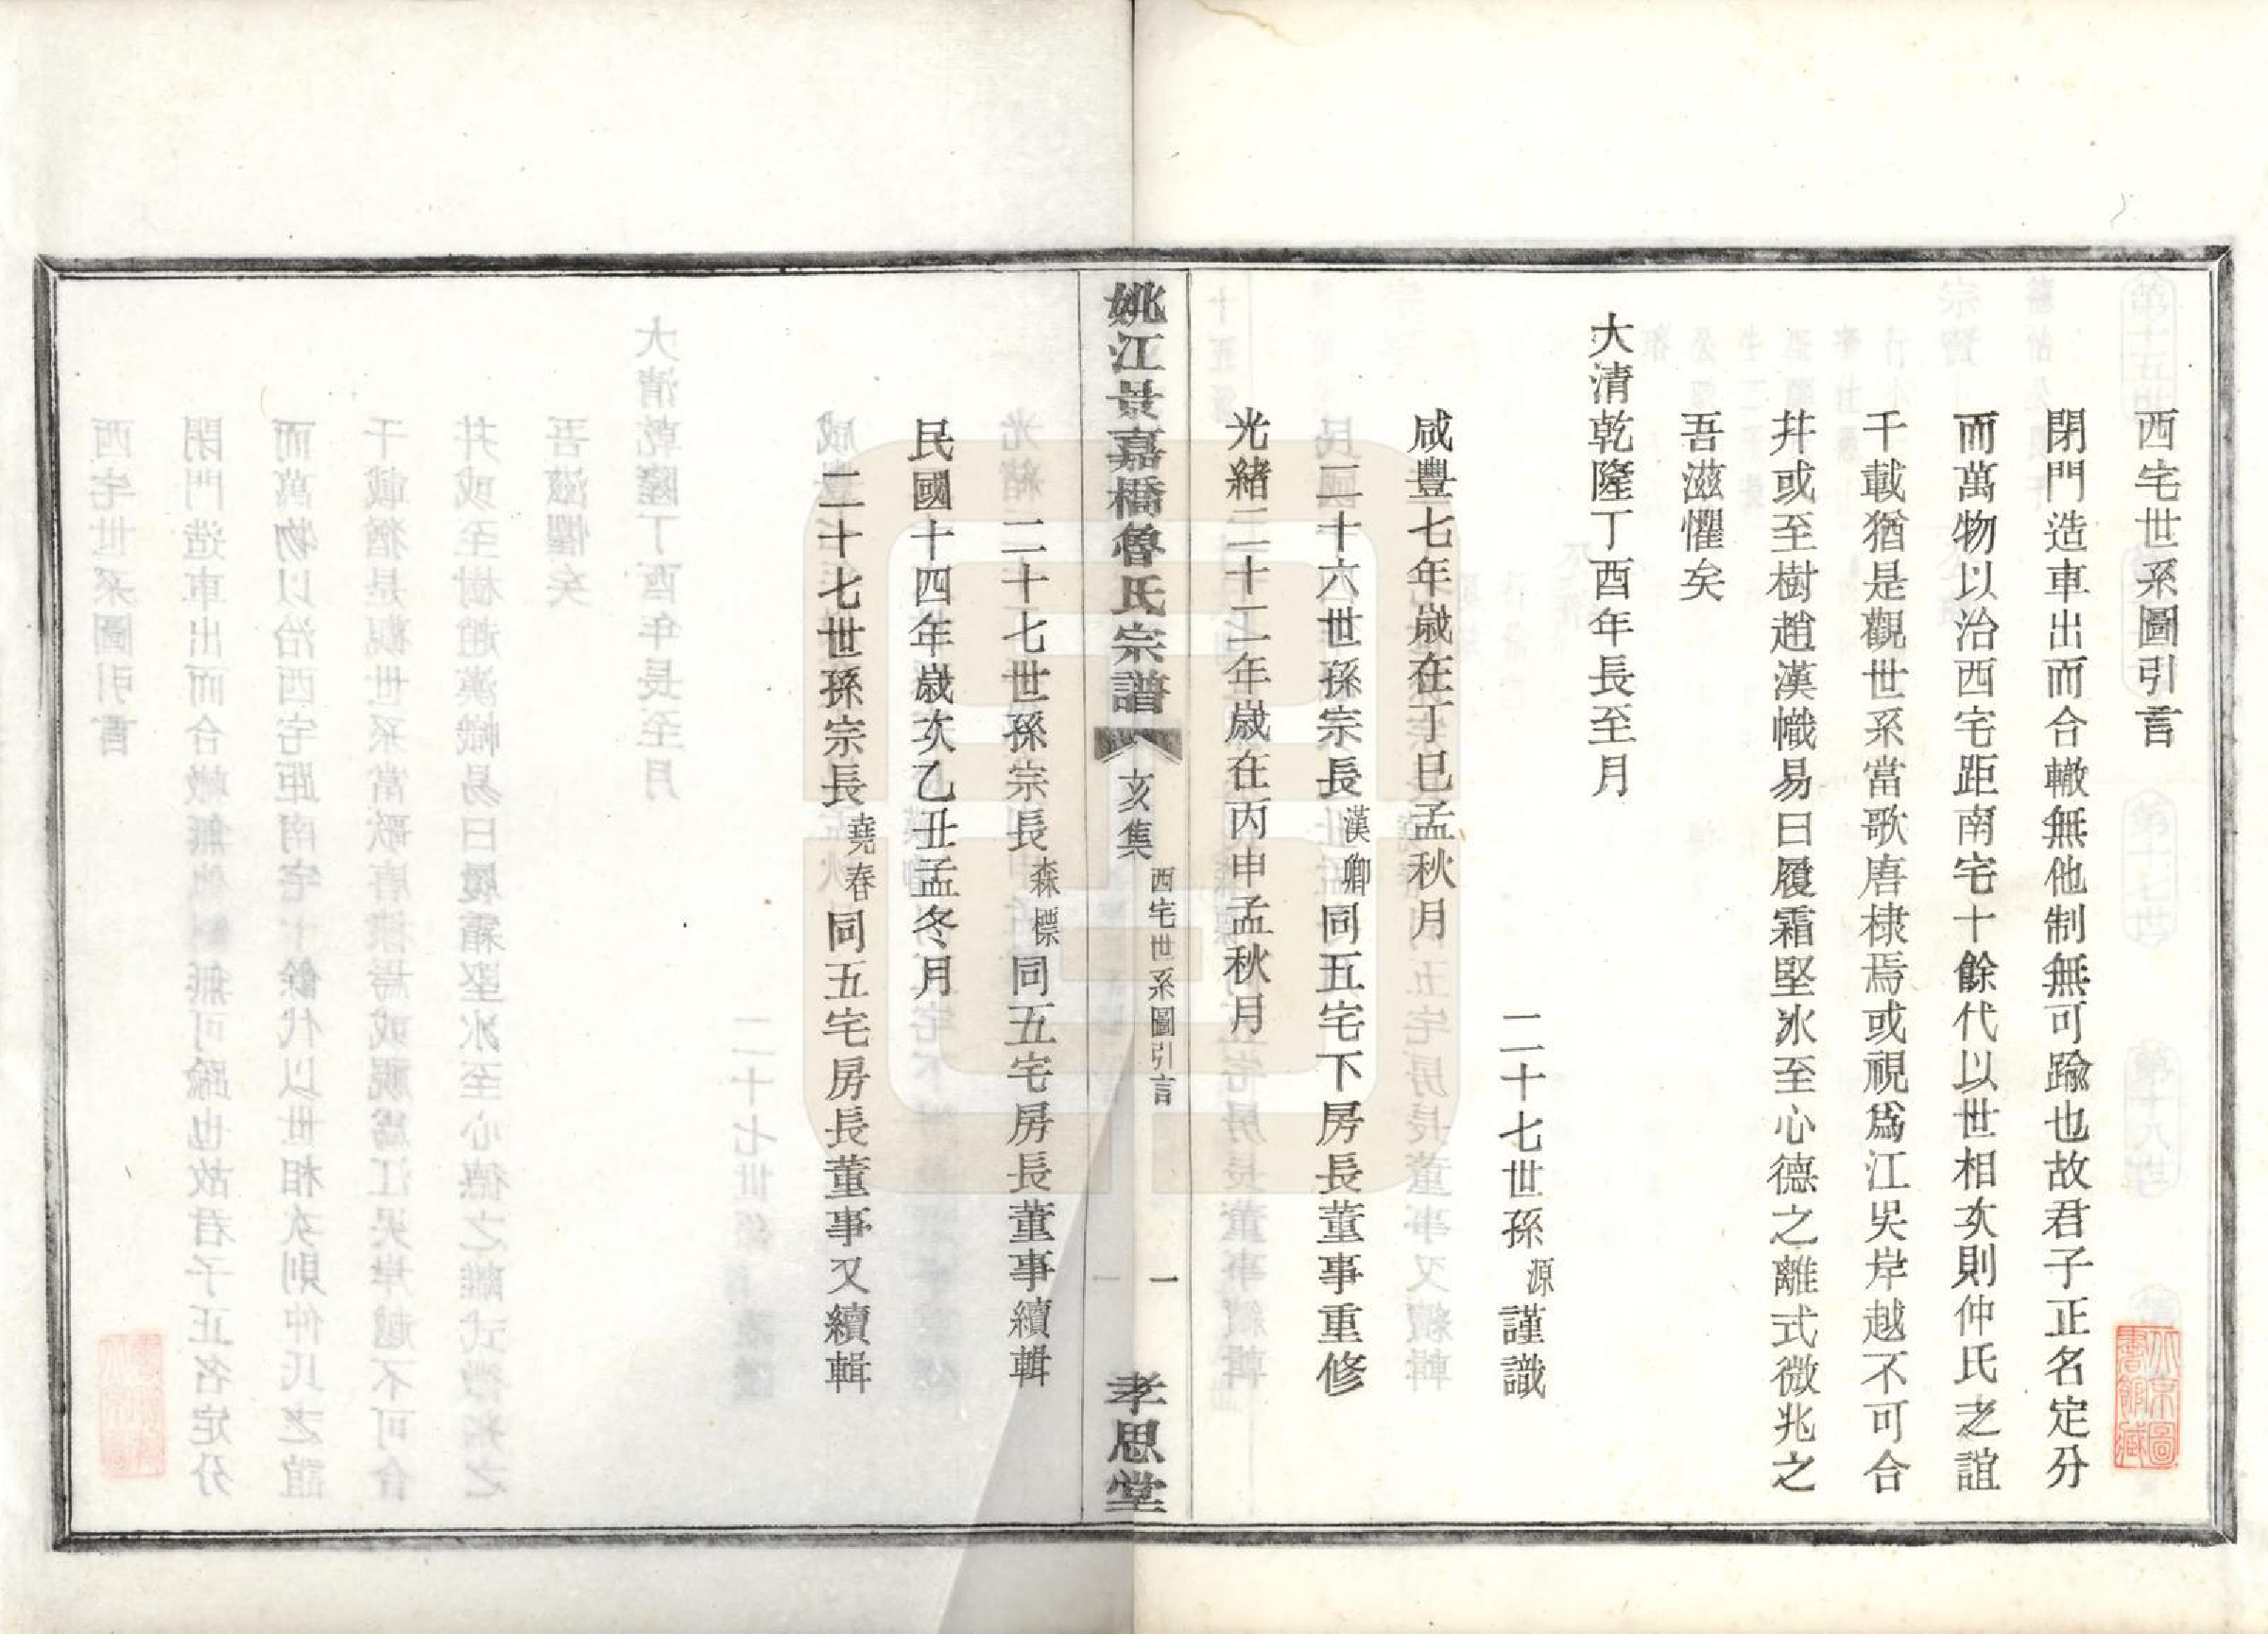 西宅世系圖引言
閉門造車出而合轍無他制無可踰也故君子正名定分
而萬物以治西宅距南宅十餘代以世相次則仲氏之誼
千載猶是觀世系當歌唐棣焉或視爲江吳岸越不可合
井或至樹趙漢幟易曰履霜堅冰至心德之離式微兆之
吾滋懼矣
大清乾隆丁酉年長至月
二十七世孫源謹識
咸豐七年歲在丁巳孟秋月
二十六世孫宗長漢卿同五宅下房長董事重修
光緒二十二年歲在丙申孟秋月
姚江景嘉橋魯氏宗譜
亥集
西宅世系圖引言
一
孝思堂
二十七世孫宗長森標同五宅房長董事續輯
民國十四年歲次乙丑孟冬月
二十七世孫宗長堯春同五宅房長董事又續輯